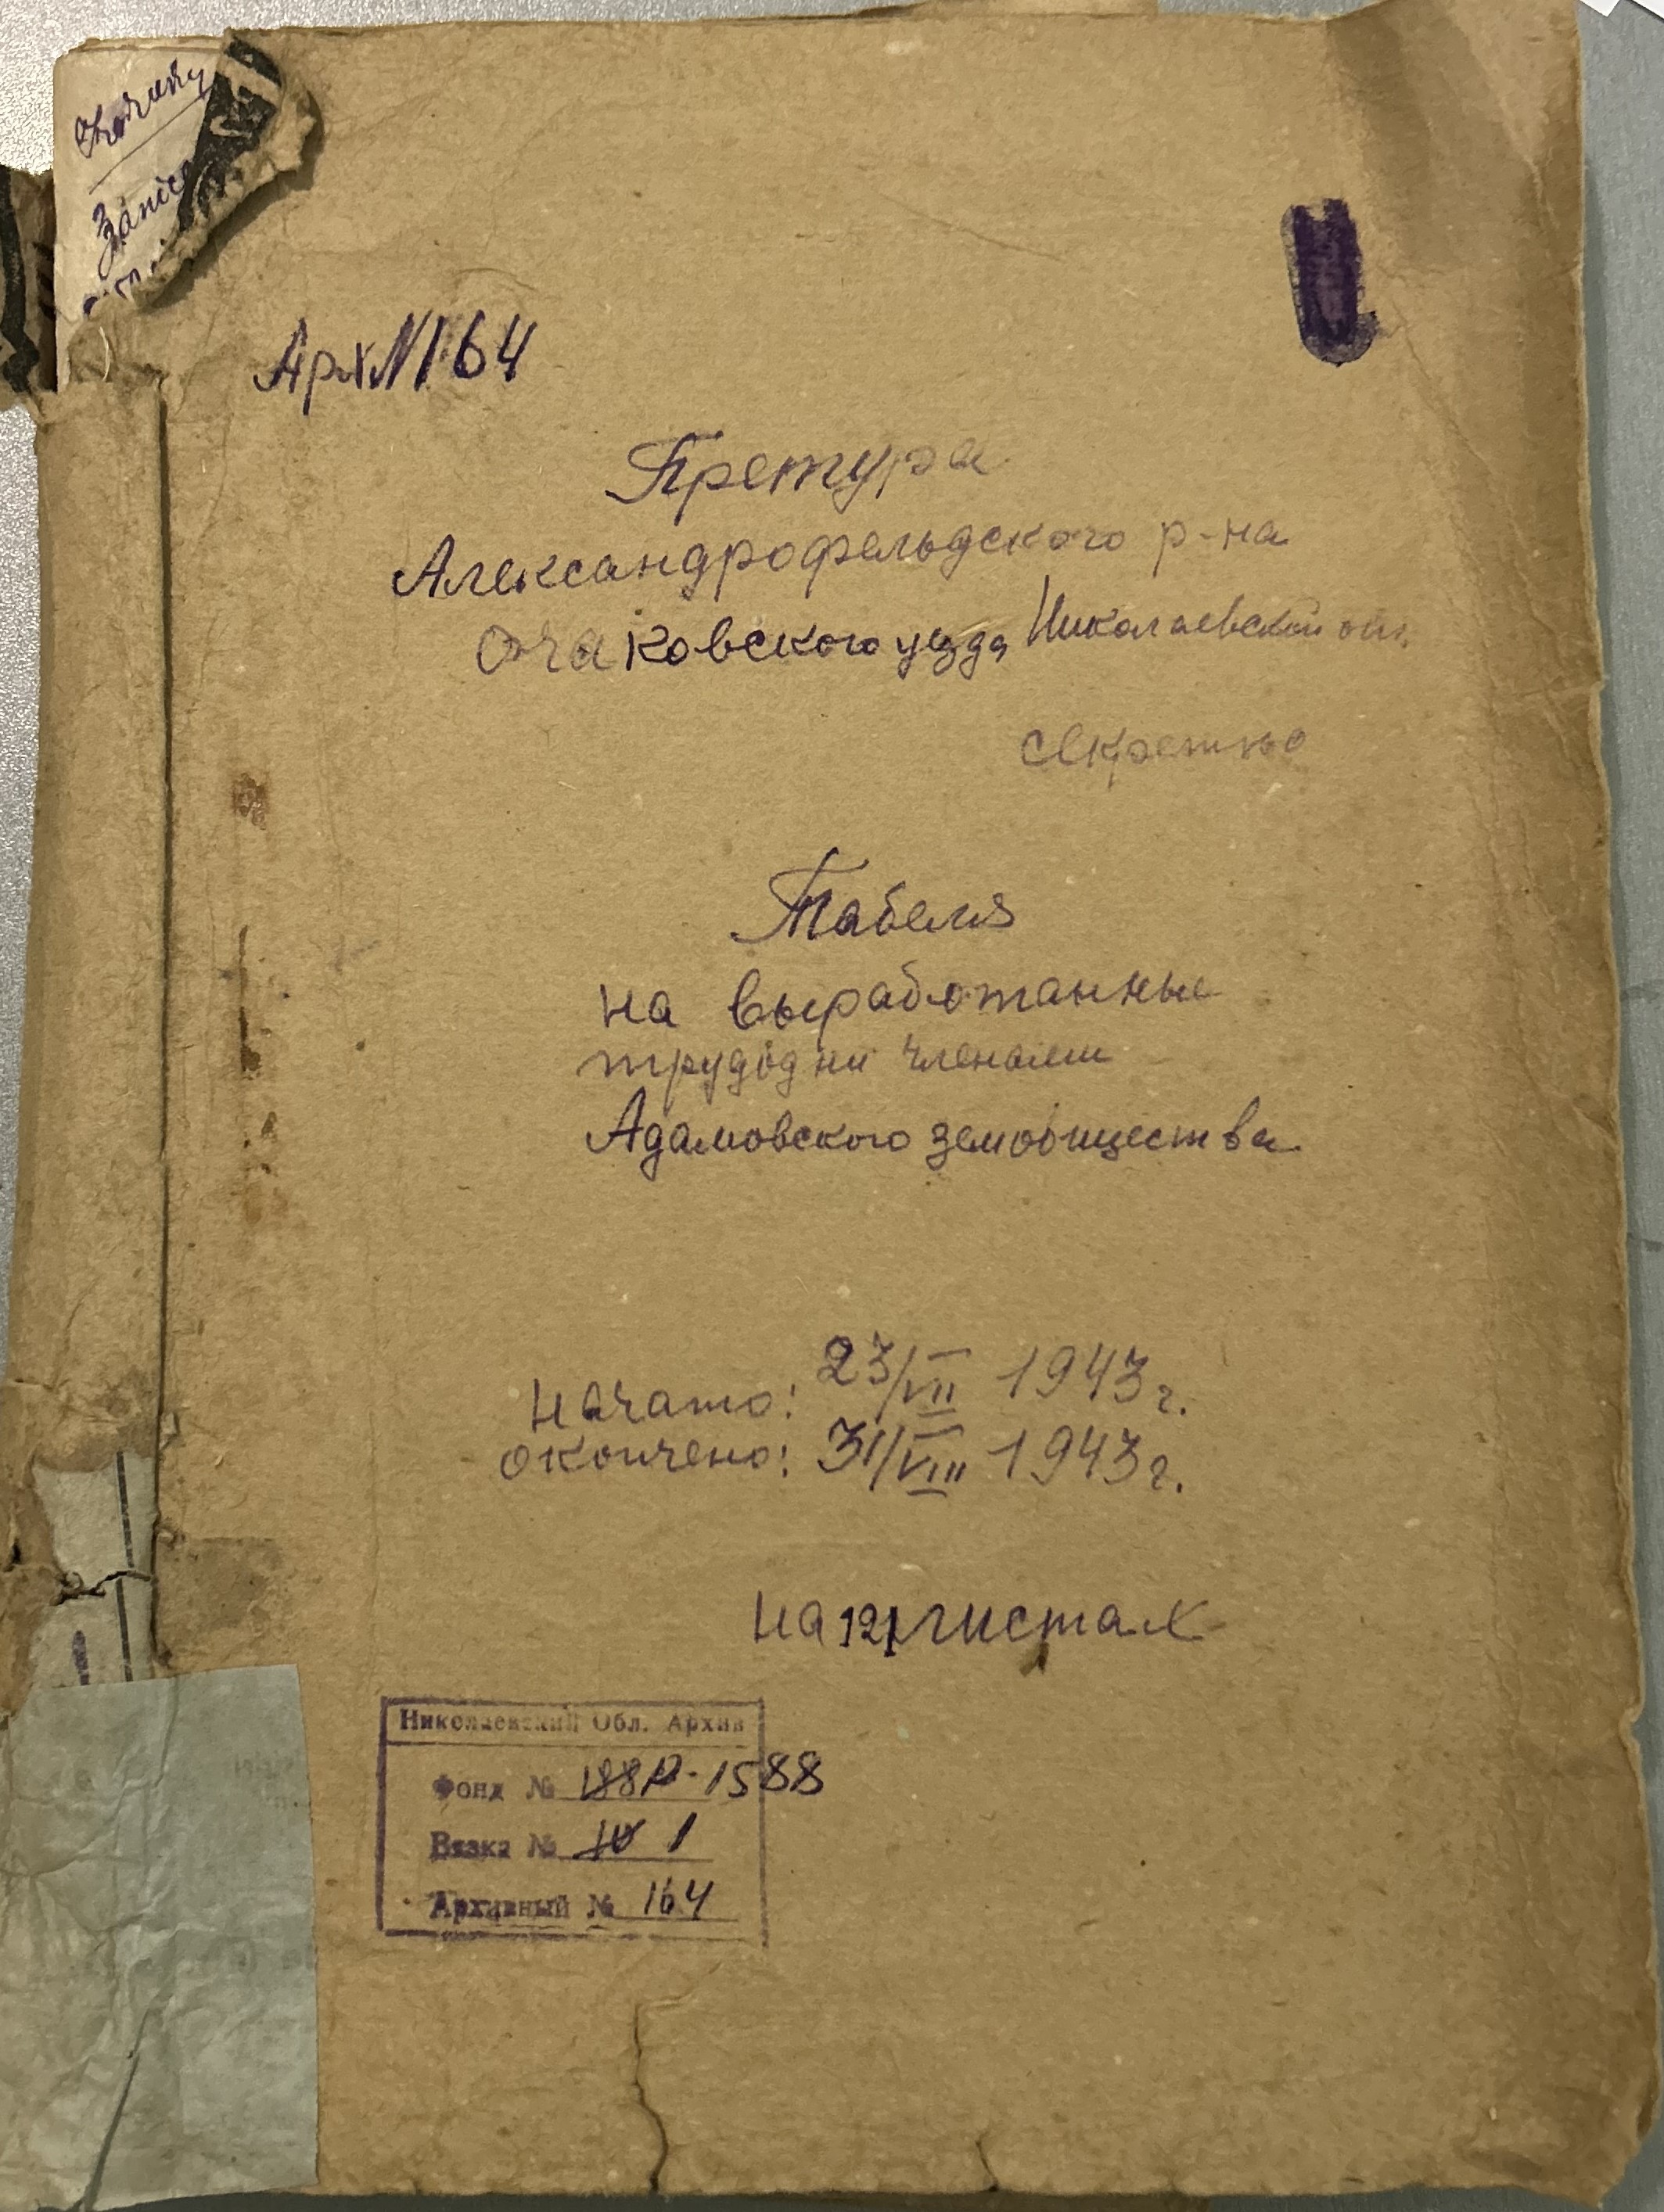 Арх N 164
Претура
Александрофельдского р-на
Очаковского уезда Николаевской обл.
Секретно
Табеля
на выработанные
трудодни членами
Адамовского земобщества
Начато: 23/VII 1943 г.
окончено: 31/VIII 1943 г.
на 121 листах
Николаевский Обл. Архив
Фонд № Р-1588
Вязка № 10 1
Архивный № 164